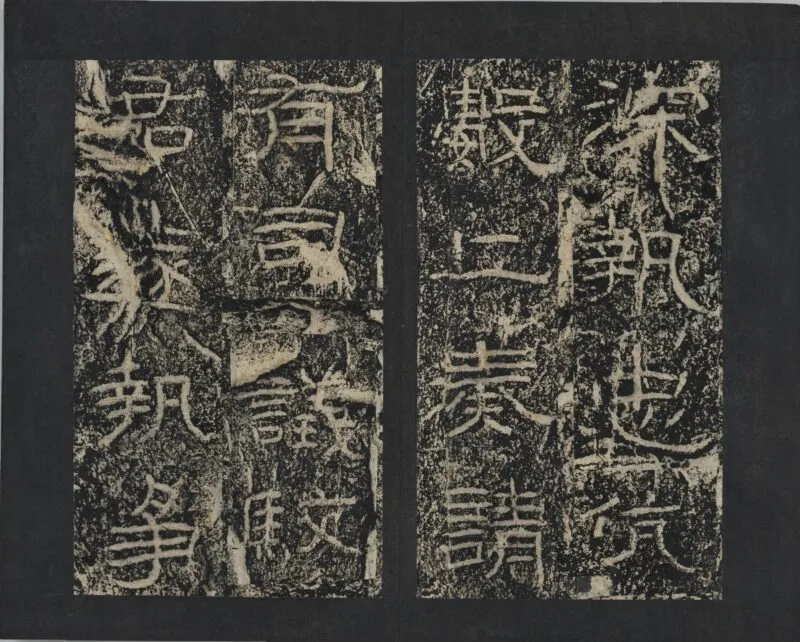 深執忠伉
數上奏請
有司議駮
君遂執爭